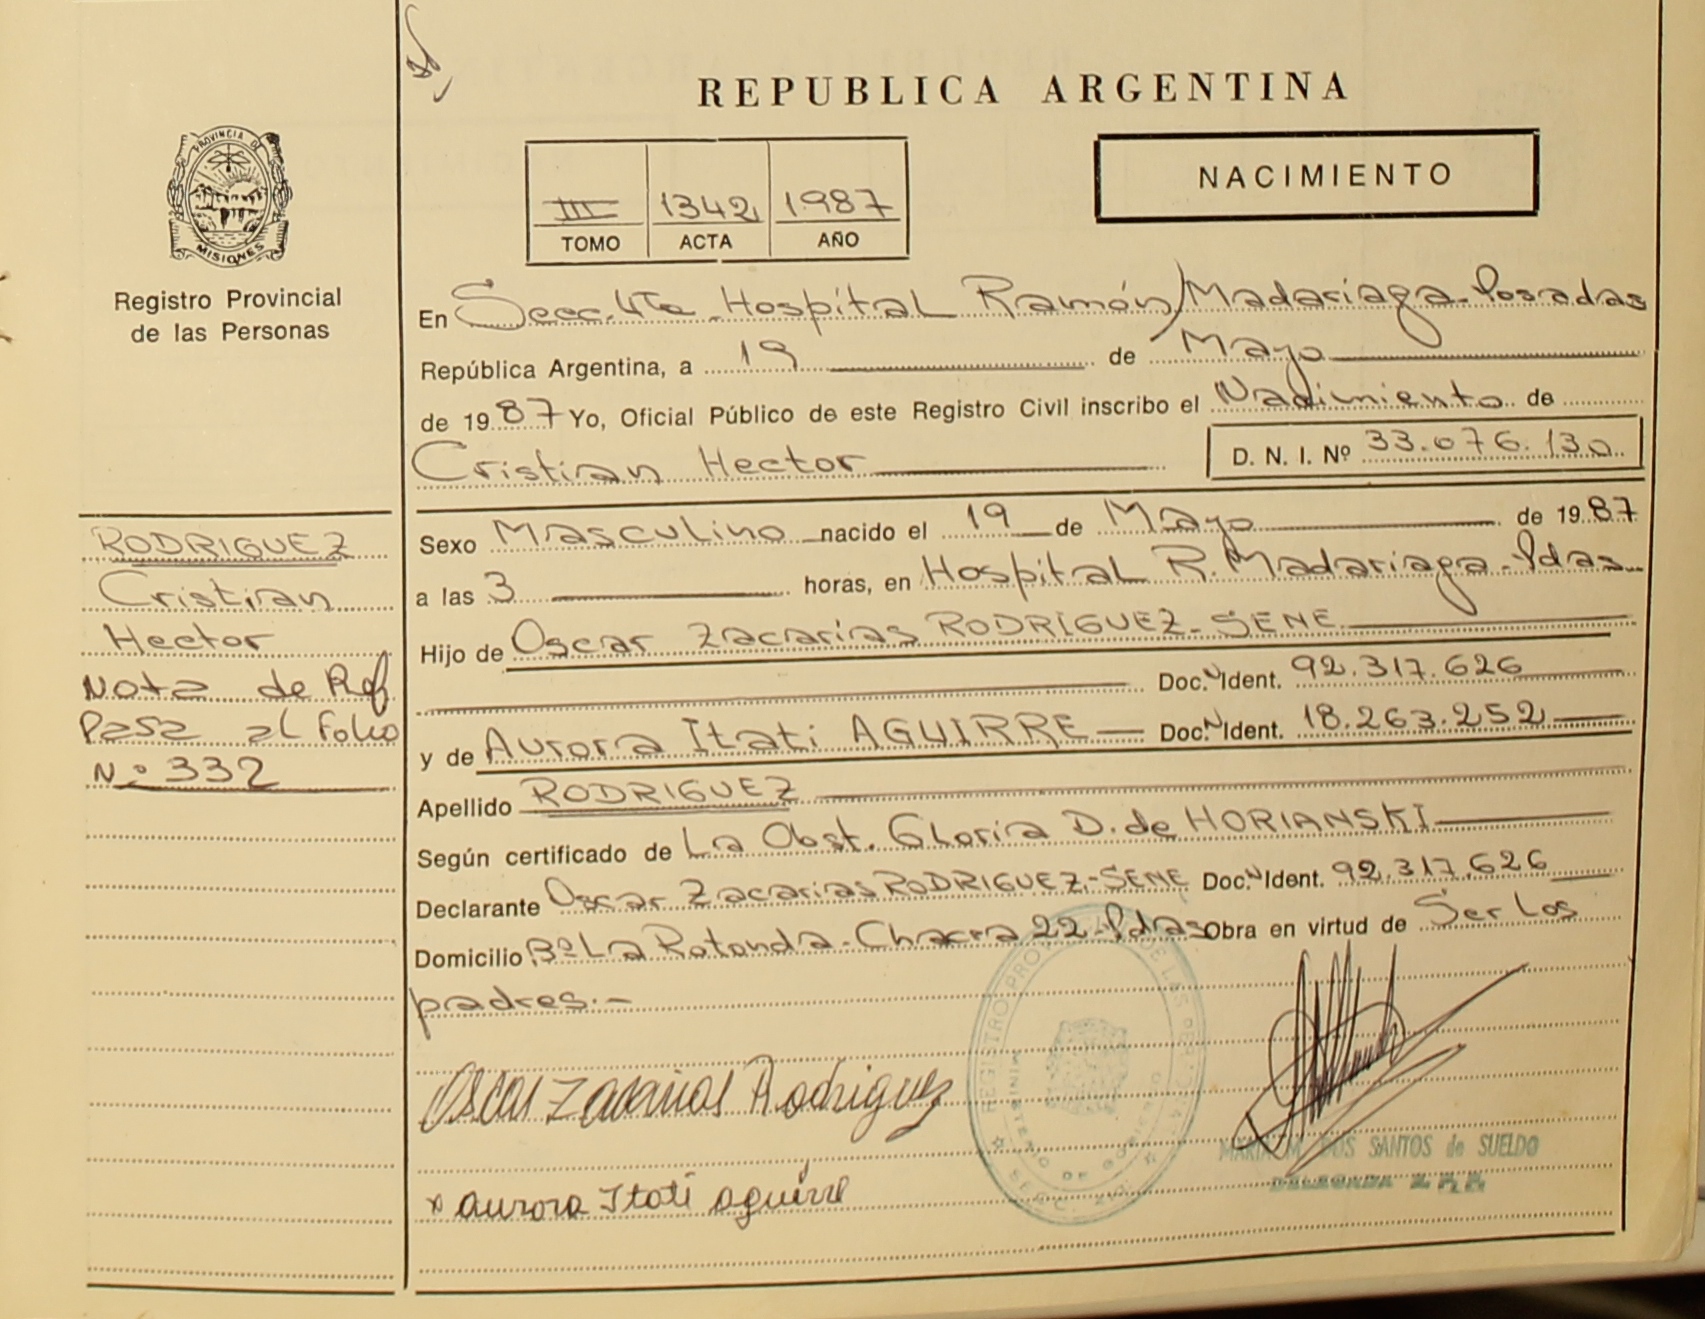 REPUBLICA ARGENTINA
PROVINCIA DE
MISIONES
Registro Provincial
de las Personas
III 1342 1987
TOMO ACTA AÑO
NACIMIENTO
En Secc. 4ta. Hospital Ramón Madariaga - Posadas
República Argentina, a 19 de Mayo
de 1987 Yo, Oficial Público de este Registro Civil inscribo el Nacimiento de
Cristian Hector D. N. I. Nº 33.076.130
Sexo Masculino nacido el 19 de Mayo de 1987
a las 3 horas, en Hospital R. Madariaga - Pdas
Hijo de Oscar Zacarías RODRIGUEZ - SENE
Doc. N Ident. 92.317.626
y de Aurora Itati AGUIRRE Doc. N Ident. 18.263.252
Apellido RODRIGUEZ
Según certificado de La Obst. Gloria D. de HORIANSKI
Declarante Oscar Zacarias RODRIGUEZ - SENE Doc. N Ident. 92.317.626
Domicilio Bº La Rotonda - Chacra 22 - Pdas Obra en virtud de Ser Los
padres.-
Oscar Zacarias Rodriguez
x Aurora Itati Aguirre
RODRIGUEZ
Cristian
Hector
Nota de Ref
Pasa al Folio
Nº 332
REGISTRO PROV DE LAS PERSONAS
MINISTERIO DE GOBIERNO
SECC.
MARIA M. DOS SANTOS de SUELDO
DELEGADA